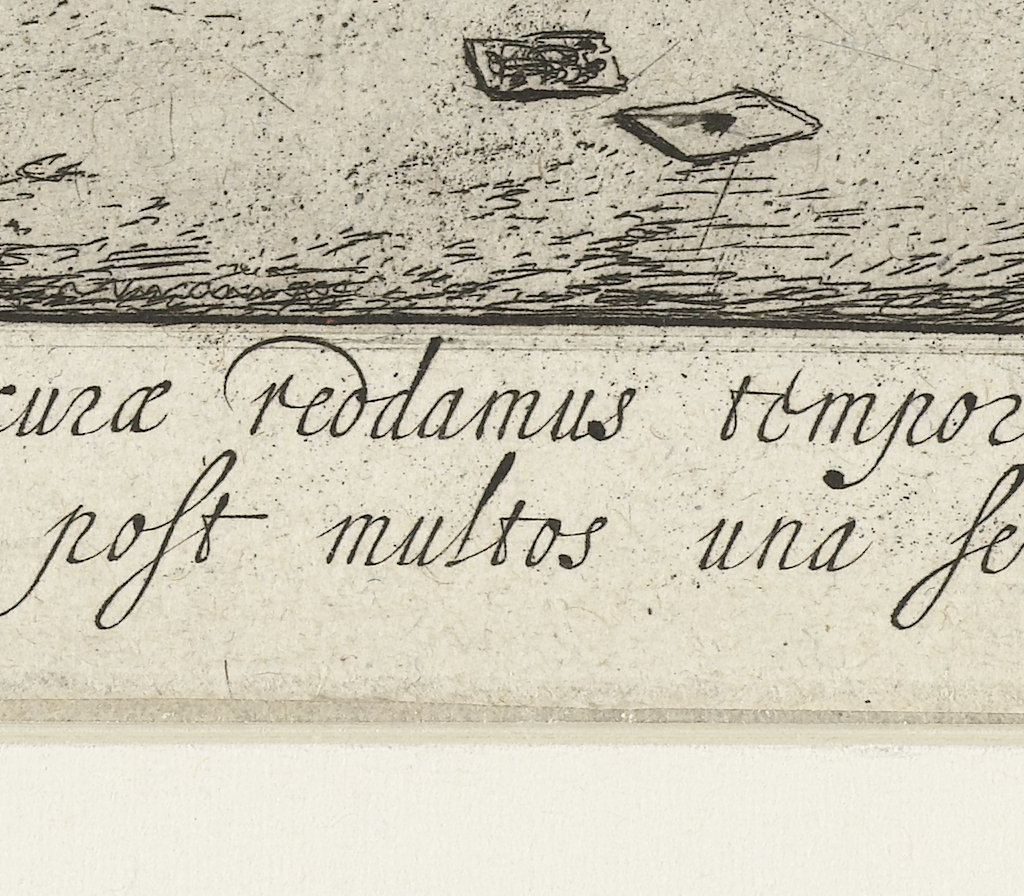 curæ reddamus tempor
poſt multos una ſe